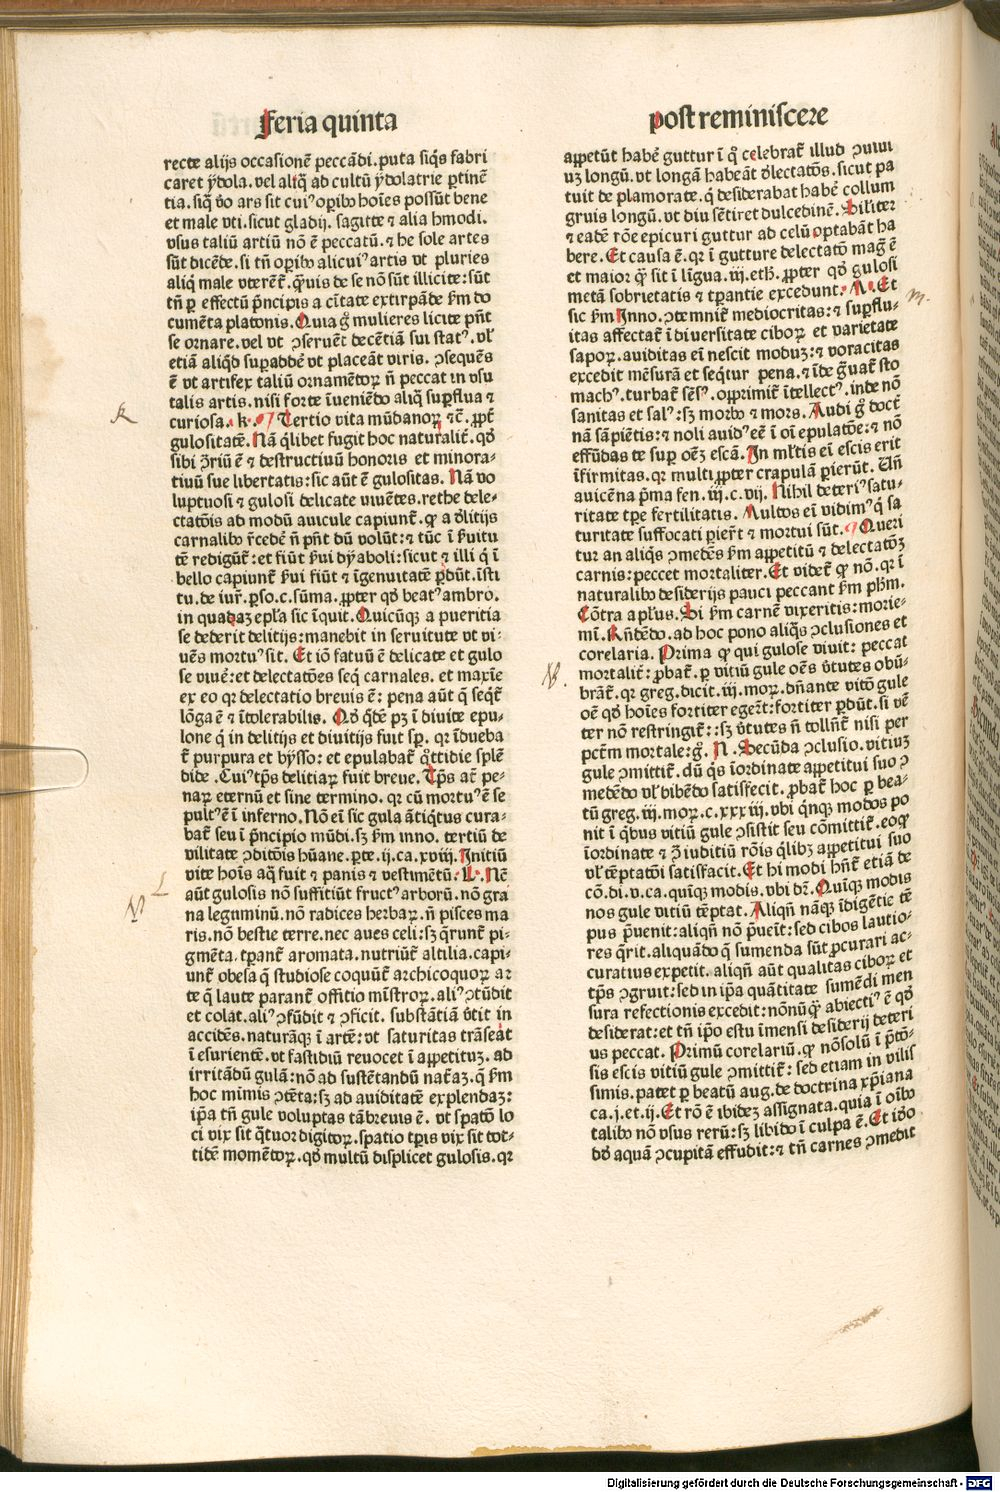 Feria quinta
post reminiscere
recte alijs occasionē peccādi. puta siq̄s fabri
caret ẏdola. vel aliq̄ ad cultū ẏdolatrie ꝑtinē
tia. siq̄ v̄o ars sit cuiꝰ oꝑibꝰ hoīes possūt bene
et male vti. sicut gladij. sagitte ⁊ alia hmodi.
vsus taliū artiū nō ē peccatū. ⁊ he sole artes
sūt dicēde. si tn̄ oꝑibꝰ alicuiꝰ artis vt pluries
aliq̄ male vterēt᷑. q̄uis de se nō sūt illicite: sūt
tn̄ ꝑ effectū p̄ncipis a cītate extirpāde ẜm do
cumēta platonis. Quia gͦ mulieres licite pn̄t
se ornare. vel vt ꝯseruēt decētiā sui statꝰ. vl̓
etiā aliqͥd suꝑaddēꝰ vt placeāt viris. ꝯsequēs
ē vt artifex taliū ornamētoꝝ n̄ peccat in vsu
talis artis. nisi forte īueniēdo aliq̄ suꝑflua ⁊
curiosa. k. Tertio vita mūdanoꝝ ⁊c̄. ꝓpt̄
gulositatē. Nā q̄libet fugit hoc naturalit̄. qd̓
sibi ꝯ̄riū ē ⁊ destructiuū honoris et minora-
tiuū sue libertatis: sic aūt ē gulositas. Nā vo
luptuosi ⁊ gulosi delicate viuētes. rethe dele-
ctatōis ad modū auicule capiunt᷑. qꝛ a d̓litijs
carnalibꝰ r̄cedē n̄ pn̄t dū volūt: ⁊ tūc ī ẜuitu
tē redigūt᷑: et fiūt ẜui dẏaboli: sicut ⁊ illi q̄ ī
bello capiunt᷑ ẜui fiūt ⁊ īgenuitatē ꝑdūt. īsti
tu. de iur̄. ꝑso. c. sūma. ꝓpter qd̓ beatꝰ ambro.
in quadaꝫ epl̓a sic īquit. Quicūqꝫ a pueritia
se dederit delitijs: manebit in seruitute vt vi-
uēs mortuꝰ sit. Et iō fatuū ē delicate et gulo
se viuē: et delectatōes seq̄ carnales. et maxīe
ex eo qꝛ delectatio breuis ē: pena aūt q̄ seq̄t᷑
lōga ē ⁊ ītolerabilis. Qd̓ qͥdē pꝫ ī diuite epu-
lone q̄ in delitijs et diuitijs fuit sꝑ. qꝛ īdueba
t᷑ purpura et bẏsso: et epulabat᷑ q̄ttidie splē
dide. Cuiꝰ tp̄s delitiaꝝ fuit breue. Tp̄s at̄ pe-
naꝝ eternū et sine termino. qꝛ cū mortuꝰ ē se
pultꝰ ē ī inferno. Nō eī sic gula ātiqͥtus cura-
bat᷑ seu ī p̄ncipio mūdi. sꝫ ẜm inno. tertiū de
vilitate ꝯditōīs hūane. ꝑte. ij. ca. xviij. Initiū
vite hoīs aq̄ fuit ⁊ panis ⁊ vestimētū. L. Nē
aūt gulosis nō suffitiūt fructꝰ arborū. nō gra
na leguminū. nō radices herbaꝝ. n̄ pisces ma
ris. nō bestie terre. nec aues celi: sꝫ q̄runt᷑ pi-
gmēta. ꝯꝑant᷑ aromata. nutriūt᷑ altilia. capi-
unt᷑ obesa q̄ studiose coquūt᷑ archicoquoꝝ ar
te q̄ laute parant᷑ offitio mīstroꝝ. aliꝰ ꝯtūdit
et colat. aliꝰ ꝯfūdit ⁊ ꝯficit. substātiā v̓tit in
accidēs. naturāqꝫ ī artē: vt saturitas trāseat
ī esurientē. vt fastidiū reuocet ī aꝑpetituꝫ. ad
irritādū gulā: nō ad sustētandū nat̄aꝫ. q̄ ẜm
hoc mīmis ꝯtēta: sꝫ ad auiditatē explendaꝫ:
ip̄a tn̄ gule voluptas tā breuis ē. vt spatō lo
ci vix sit q̄tuor digitoꝝ. spatio tp̄is vix sit tot-
tidē momētoꝝ. qd̓ multū displicet gulosis. qꝛ
aꝑpetūt habē guttur ī qͦ celebrat᷑ illud ꝯuiui
uꝫ longū. vt longā habeāt d̓lectatōꝫ. sicut pa
tuit de plamorate. q̄ desiderabat habē collum
gruis longū. vt diu sētiret dulcedinē. Siliter
⁊ eadē rōe epicuri guttur ad celū optabāt ha
bere. Et causa ē. qꝛ ī gutture delectatō maḡ ē
et maior qͣ sit ī līgua. iij. eth. ꝓpter qd̓ gulosi
metā sobrietatis ⁊ tꝑantie excedunt. M. Et
sic ẜm Inno. ꝯtemnit᷑ mediocritas: ⁊ suꝑflu-
itas affectat᷑ ī diuersitate ciboꝝ et varietate
sapoꝝ. auiditas eī nescit moduꝫ: ⁊ voracitas
excedit mēsurā et seq̄tur pena. ⁊ īde g̓uat᷑ sto
machꝰ. turbat᷑ sēsꝰ. opprimit᷑ ītellectꝰ. inde nō
sanitas et salꝰ: sꝫ morbꝰ ⁊ mors. Audi gͦ doct᷑
nā sapiētis: ⁊ noli auidꝰ ee͞ ī oī epulatōe: ⁊ nō
effūdas te suꝑ oēꝫ escā. In ml̓tis eī escis erit
īfirmitas. qꝛ multi ꝓpter crapulā ꝑierūt. Uñ
auicēna p̄ma fen. iij. c. vij. Nihil deteriꝰ satu-
ritate tꝑe fertilitatis. Multos eī vidimꝰ q̄ sa
turitate suffocati ꝑier̄t ⁊ mortui sūt. Queri
tur an aliq̄s ꝯmedēs ẜm aꝑpetitū ⁊ delectatōꝫ
carnis: peccet mortaliter. Et videt᷑ qꝛ nō. qꝛ ī
naturalibꝰ desiderijs pauci peccant ẜm pb̓m.
Cōtra apl̓us. Si ẜm carnē vixeritis: morie-
mī. Rn̄dēdo. ad hoc pono aliq̄s ꝯclusiones et
corelaria. Prima qꝛ qui gulose viuit: peccat
mortalit̄: ꝓbat᷑. ꝑ vitiū gule oēs v̓tutes obū-
brāt᷑. qꝛ greg. dicit. iij. moꝝ. dn̄ante vitō gule
oē qd̓ hoīes fortiter eger̄t: fortiter ꝑdūt. si vē
ter nō restringit᷑: sꝫ v̓tutes n̄ tollūt᷑ nisi per
pctm̄ mortale: gͦ. N. Secūda ꝯclusio. vitiuꝫ
gule ꝯmittit᷑. dū qͥs īordinate aꝑpetitui suo ꝯ
medēdo vl̓ bibēdo satisfecit. ꝓbat᷑ hoc ꝑ bea-
tū greg. iij. moꝝ. c. xxxiij. vbi qͥnqꝫ modos po
nit ī qͥbus vitiū gule ꝯsistit seu cōmittit᷑. eo qꝛ
īordinate ⁊ ꝯ̄ iuditiū rōis qͥlibꝫ aꝑpetitui suo
vl̓ tēptatōi satisfacit. Et hi modi hn̄t᷑ etiā de
cō. di. v. ca. quīqꝫ modis. vbi dr̄. Quīqꝫ modis
nos gule vitiū tēptat. Aliqn̄ nāqꝫ īdigētie tē
pus p̄uenit: aliqn̄ nō p̄ueīt: sed cibos lautio-
res q̄rit. aliquādo q̄ sumenda sūt ꝓcurari ac-
curatius expetit. aliqn̄ aūt qualitas ciboꝝ et
tp̄s ꝯgruit: sed in ip̄a quātitate sumēdi men
sura refectionis excedit: nōnūqͣ abiectiꝰ ē qd̓
desiderat: et tn̄ ip̄o estu īmensi desiderij deteri
us peccat. Primū corelariū. qꝛ nōsolū ī p̄tō-
sis escis vitiū gule ꝯmittit᷑: sed etiam in vilis
simis. patet ꝑ beatū aug. de doctrina xp̄iana
ca. j. et. ij. Et rō ē ibideꝫ assignata. quia ī oībꝰ
talibꝰ nō vsus rerū: sꝫ libido ī culpa ē. Et iō
dd̓ aquā ꝯcupitā effudit: ⁊ tn̄ carnes ꝯmedit
k
L
N
m.
N.
Digitalisierung gefördert durch die Deutsche Forschungsgemeinschaft - DFG